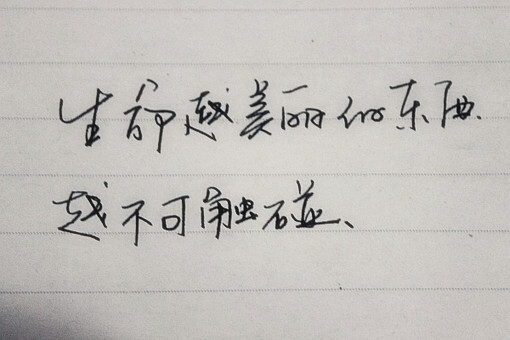 生命越美丽的东西
越不可触碰、